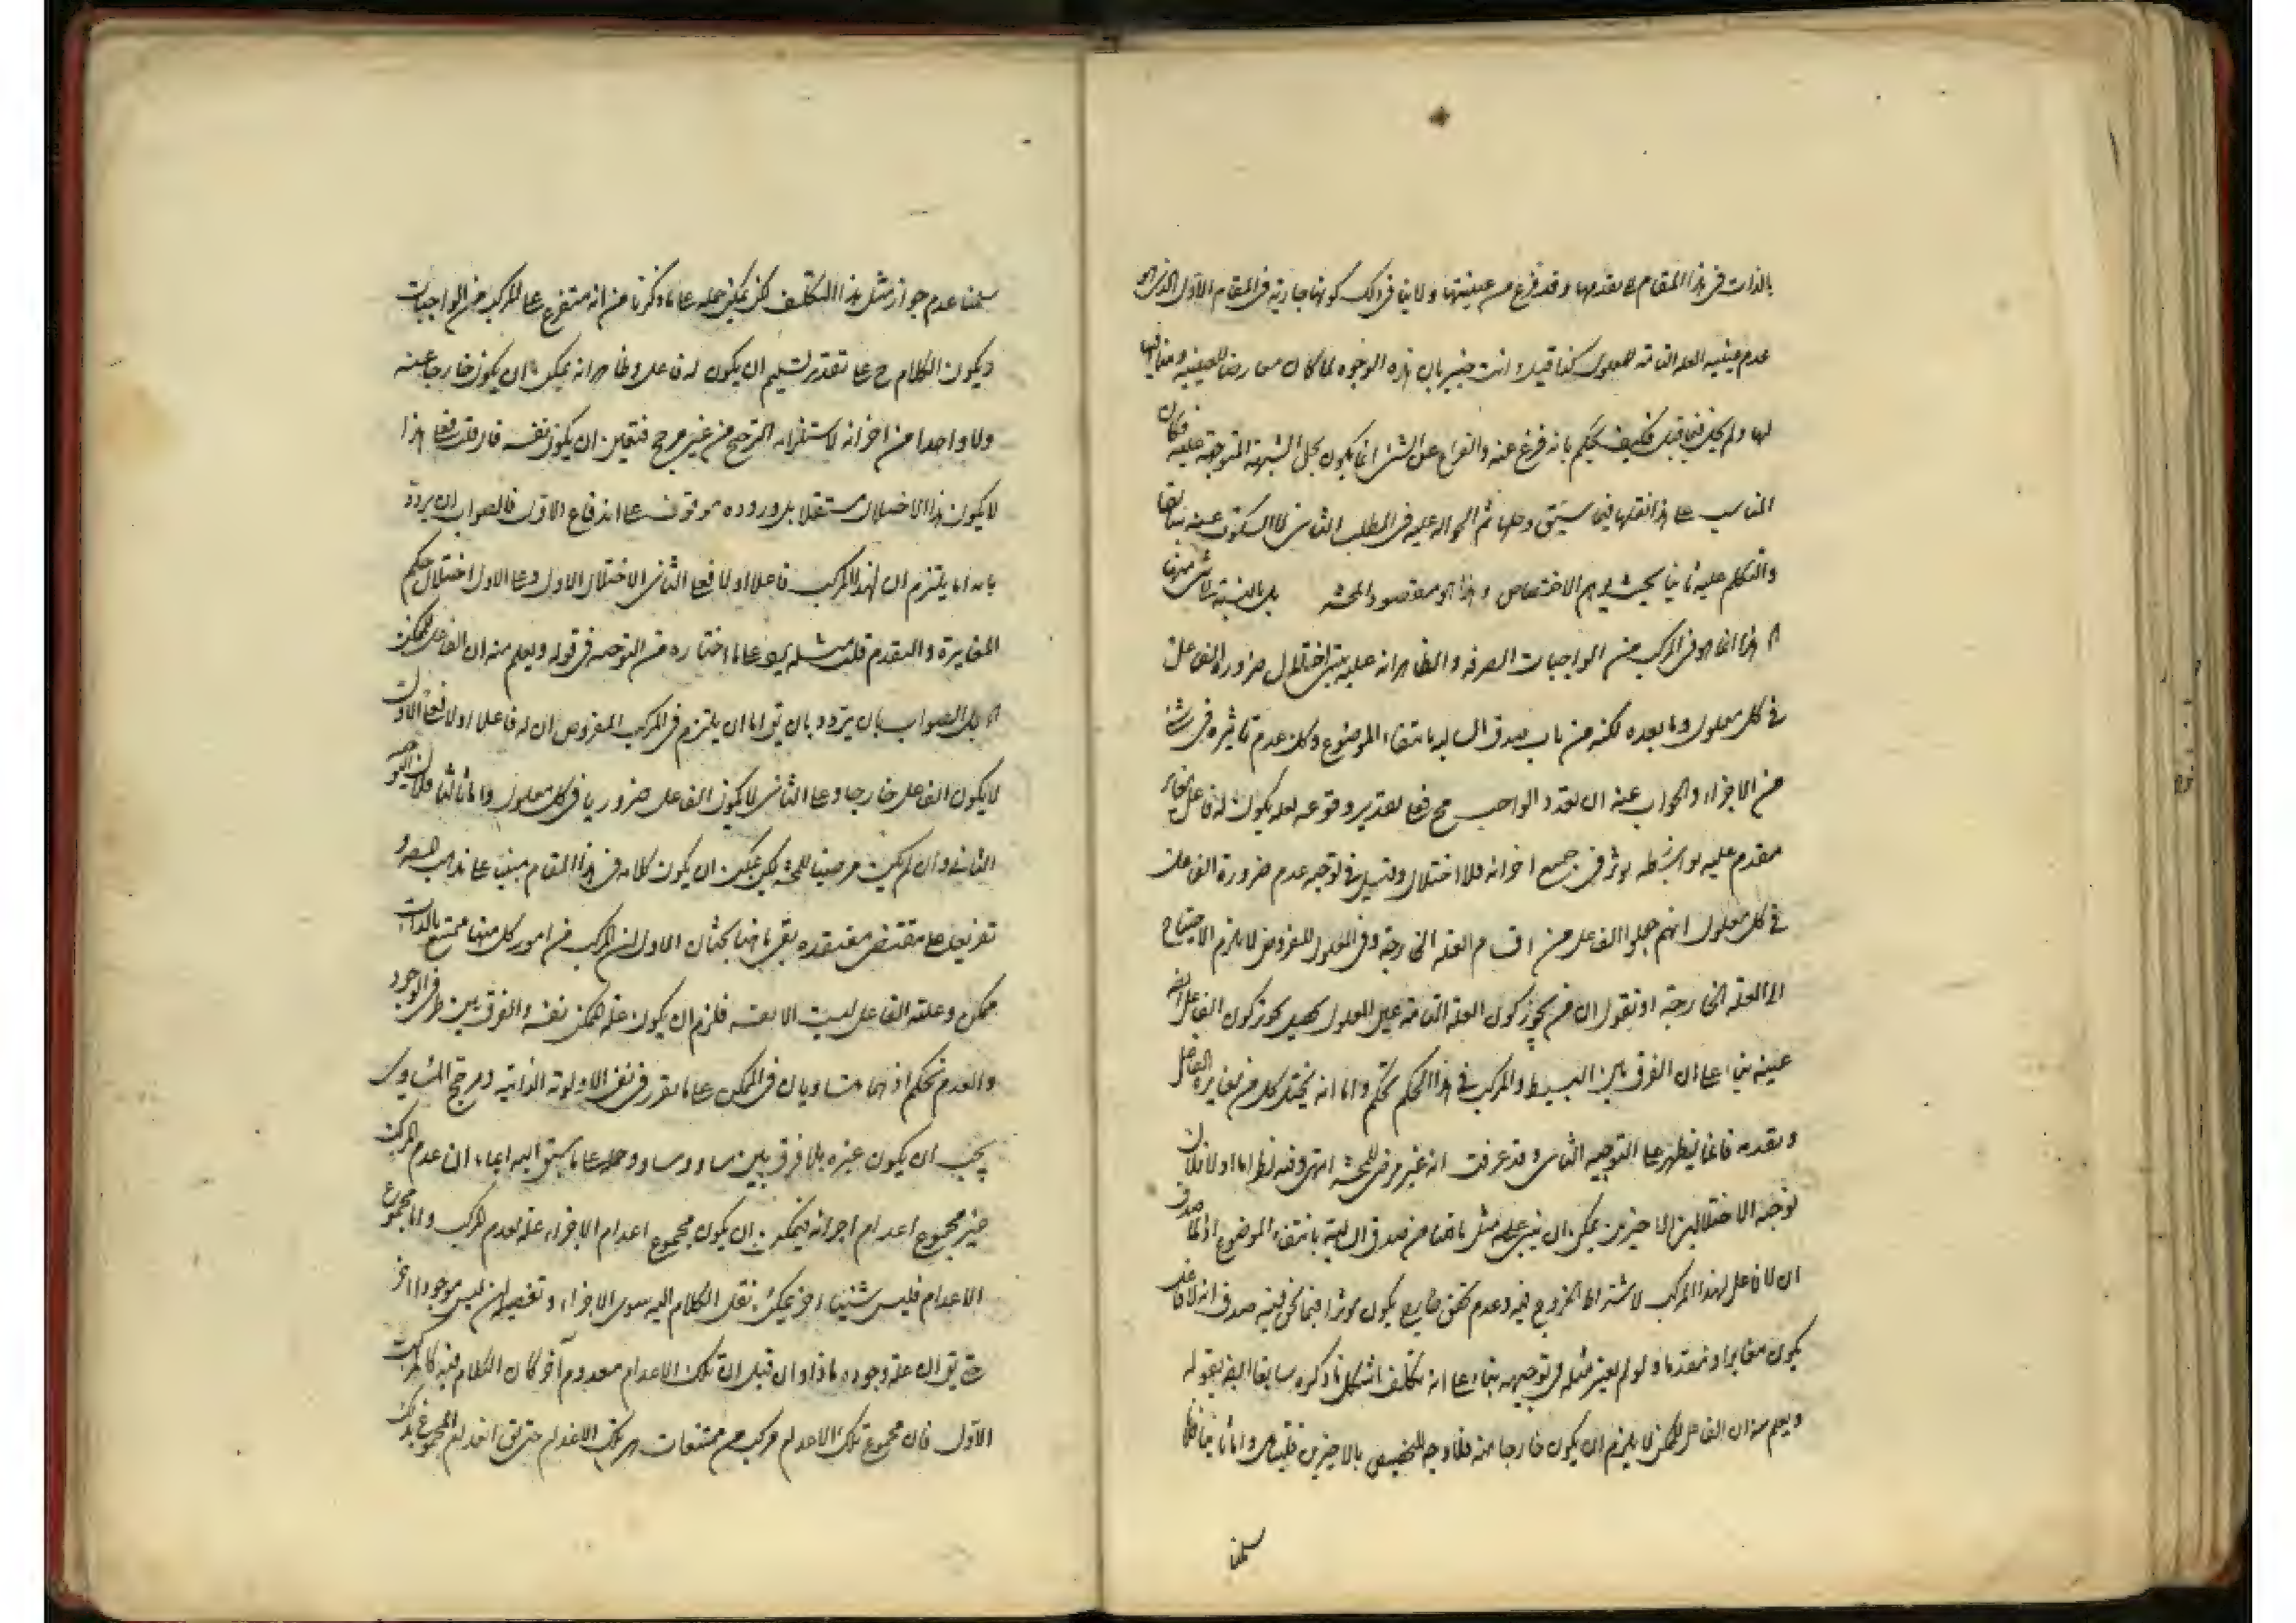 بالذات فى هذا المقام على تقدمها وقد فرغ من عينيتها ولا ينافى ذلك كونها جارية فى المقام الاول الذى هو
عدم عينية العلة التامة للمعلول كذا قيل وانت خبير بان هذه الوجوه لما كان معارضا للعينية ومنافيها
لها ولم يحل فيما قبل فكيف يحكم بانه فرغ عنه والفراغ عن الشئ انما يكون بحل الشبهة المتوجهة عليه فكان
المناسب على هذا نقلها فيما سبق وحلها ثم الحوالة عليه فى المطلب الثانى لا السكوت عنه
والتكلم عليه ثانيا بحيث يوهم الاختصاص وهذا هو مقصود المحشى بل بالنسبة
هذا انما هو فى المركب من الواجبات الصرفة والظاهر انه عليه اختلال ضرورة الفاعل
فى كل معلول وما بعده لكنه من باب صدق السالبة بانتفاء الموضوع وكذا عدم تأثيره فى شئ
من الاجزاء والجواب عنه ان تعدد الواجب مح فعلى تقدير وقوعه لعله يكون له فاعل مغاير
مقدم عليه بواسطة يؤثر فى جميع اجزائه فلا اختلال وقيل فى توجيه عدم ضرورة الفاعل
فى كل معلول انهم جعلوا الفاعل من اقسام العلة الخارجة وفى المعلول المفروض لا يلزم الاحتياج
الى العلة الخارجة او نقول ان من يجوز كون العلة التامة عين المعلول يجوز كون الفاعل
عينه بناء على ان الفرق بين البسيط والمركب فى هذا الحكم تحكم واما انه يختل كل من مغايرة الفاعل
وتقدمه فانما يظهر على التوجيه الثانى وقد عرفت انه غير مرضى للمحشى انتهى وفيه نظر اما اولا فلان
توجه الاختلالين الاخيرين يمكن ان يبنى على مثل ما قلنا من صدق السالبة بانتفاء الموضوع اذ لما صدق
ان لا فاعل لهذا المركب لاشتراط الخروج فيه وعدم تحقق خارج يكون مؤثرا فيما نحن فيه صدق انه لا فاعل
يكون مغايرا ومتقدما ولو لم يعتبر مثله فى توجيهه بناء على انه تكلف اشكل ما ذكره سابقا ايضا بقوله
ويعلم منه ان الفاعل للممكن لا يلزم ان يكون خارجا عنه فلا وجه للتخصيص بالاخيرين فليتأمل واما ثانيا فلانا
سلمنا
سلمنا عدم جواز مثل هذا التكلف لكن يمكن حمله على ما ذكرنا من انه متفرع على المركب من الواجبات
ويكون الكلام ح على تقدير تسليم ان يكون له فاعل وظاهر انه يمكن ان يكون خارجا عنه
ولا واحدا من اجزائه لاستلزامه الترجيح من غير مرجح فتعين ان يكون نفسه فان قلت فعلى هذا
لا يكون هذا الاختلال مستقلا بل وروده موقوف على اندفاع الاول فالصواب ان يردد
بانه اما يلتزم ان لهذا المركب فاعلا او لا فعلى الثانى الاختلال الاول وعلى الاول اختلال حكم
المغايرة والتقدم قلت مثله يرد على ما اختاره من التوجيه فى قوله ويعلم منه ان الفاعل للممكن
بل الصواب بان يردد بان يق اما ان يلتزم فى المركب المفروض ان له فاعلا او لا فعلى الاول
لا يكون الفاعل خارجا وعلى الثانى لا يكون الفاعل ضروريا فى كل معلول واما ثالثا فلان التوجيه
الثانى وان لم يكن مرضيا للمحشى لكن يمكن ان يكون كلامه فى هذا المقام مبنيا على مذهب
تفريعا على مقتضى معتقده بقى هاهنا بحثان الاول ان المركب من امور كل منها ممتنع بالذات
ممكن وعلته الفاعل ليست الا نفسه فلزم ان يكون علة الممكن نفسه والفرق بين طرفى الوجود
والعدم تحكم اذ هما متساويان فى الممكن على ما تقرر فى نفى الاولوية الذاتية ومرجح المتساوى
يجب ان يكون غيره بلا فرق بين مساو ومساو وحله على ما سبق اليه ايماء ان عدم المركب
غير مجموع اعدام اجزائه فيمكن ان يكون مجموع اعدام الاجزاء علة لعدم المركب واما مجموع
الاعدام فليس شيئا آخر يمكن نقل الكلام اليه سوى الاجزاء وتفصيله ان ليس موجودا آخر
حتى يق ان علة وجوده ماذا وان قيل ان تلك الاعدام معدوم آخر كان الكلام فيه كالمركب
الاول فان مجموع تلك الاعدام مركب من ممتنعات هى تلك الاعدام حتى يق انعدام المجموع